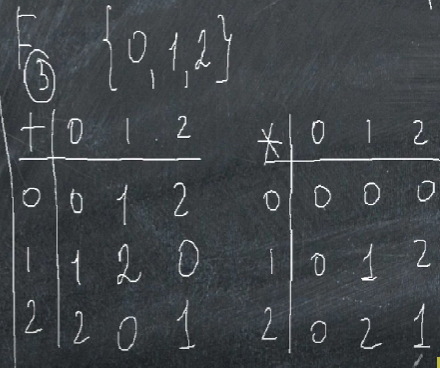 F₃ {0, 1, 2}
+ 0 1 2
0 0 1 2
1 1 2 0
2 2 0 1
× 0 1 2
0 0 0 0
1 0 1 2
2 0 2 1